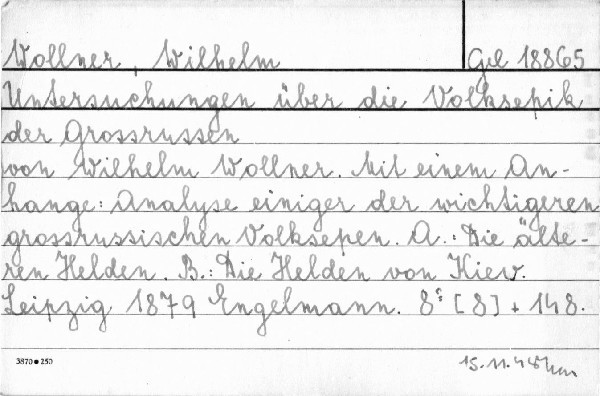 Wollner, Wilhelm Gel 18865
Untersuchungen über die Volksepik
der Grossrussen
von Wilhelm Wollner. Mit einem An-
hange: Analyse einiger der wichtigeren
grossrussischen Volksepen. A.: Die älte-
ren Helden. B.: Die Helden von Kiev.
Leipzig 1879 Engelmann. 8° [8] + 148.
3870 • 250 15.11.48